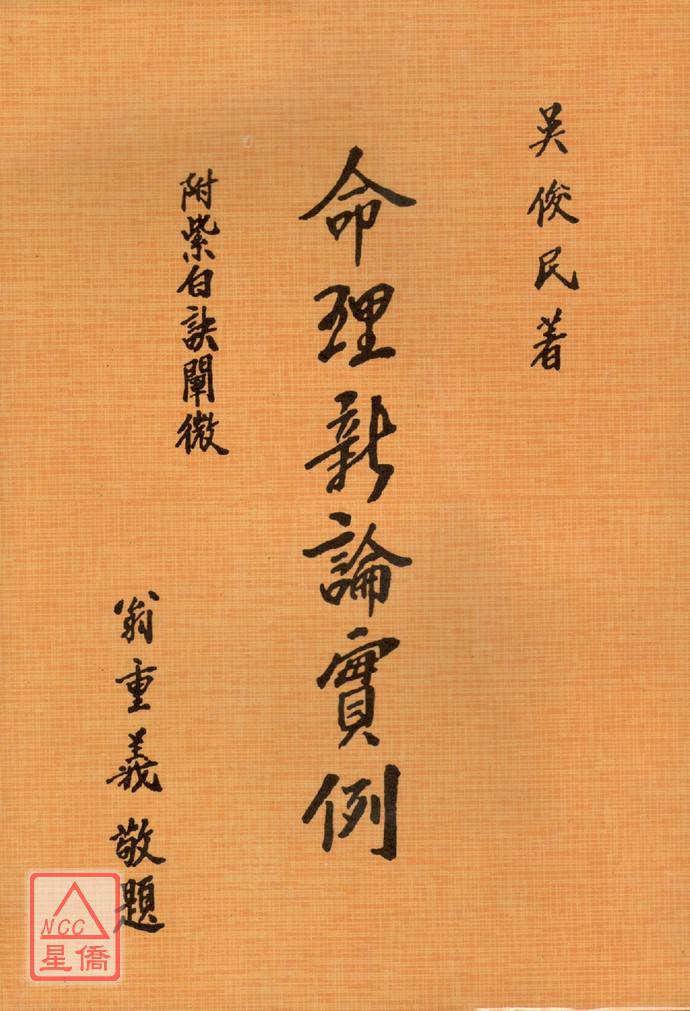 吳俊民著
命理新論實例
附紫白訣闡微
翁重義敬題
NCC
星僑